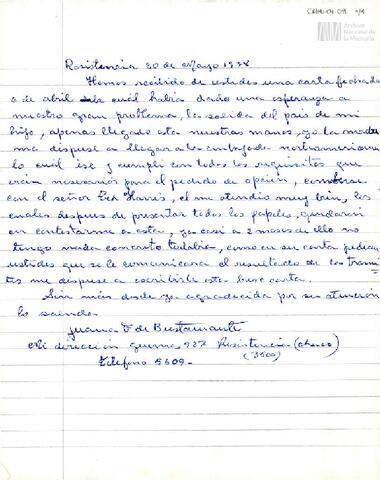 Archivo
Nacional de
la Memoria
Resistencia 30 de Mayo 1978
Hemos recibido de ustedes una carta fechada
6 de abril la cuál habia dado una esperanza a
nuestro gran problema, la salida del pais de mi
hijo, apenas llegado esta nuestras manos, yo la madre
me dispuse a llegar a la embajada norteamericana
lo cuál ise y cumpli con todos los requisitos que
eran necesarios para el pedido de opción,
con el señor Harris, el me atendio muy bien, los
cuales despues de presentar todos los papeles, quedaron
en contestarme a esta, ya casi a 2 meses de ello no
tengo nada concreto todabia, como en su carta pedian
ustedes que se le comunicara el resultado de los tramites
me dispuse a escribirle esta breve carta.
Sin más desde ya agradecida por su atención
lo saluda
Juana D de Bustamante
Mi dirección guemes 927 Resistencia (chaco)
(3500)
Telefono 5609.